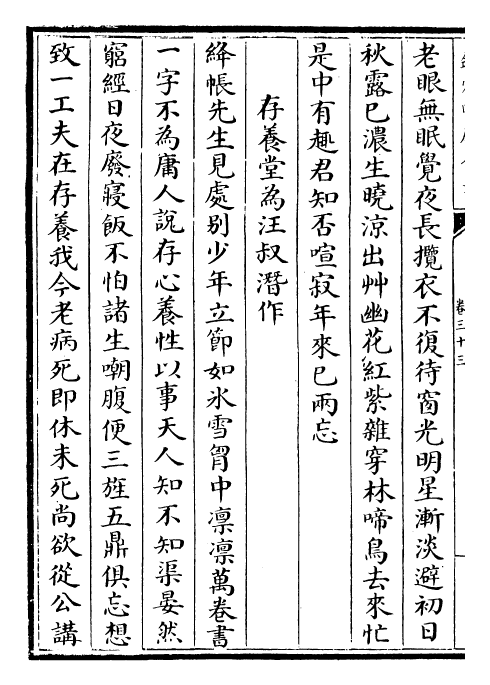 卷三十三
老眼無眠覺夜長攬衣不復待窗光明星漸淡避初日
秋露已濃生曉涼出艸幽花紅紫雜穿林啼鳥去來忙
是中有趣君知否喧寂年來已兩忘
存養堂為汪叔潛作
絳帳先生見處别少年立節如氷雪胷中凛凛萬卷書
一字不為庸人說存心養性以事天人知不知渠晏然
窮經日夜廢寢飯不怕諸生嘲腹便三旌五鼎俱忘想
致一工夫在存養我今老病死即休未死尚欲從公講